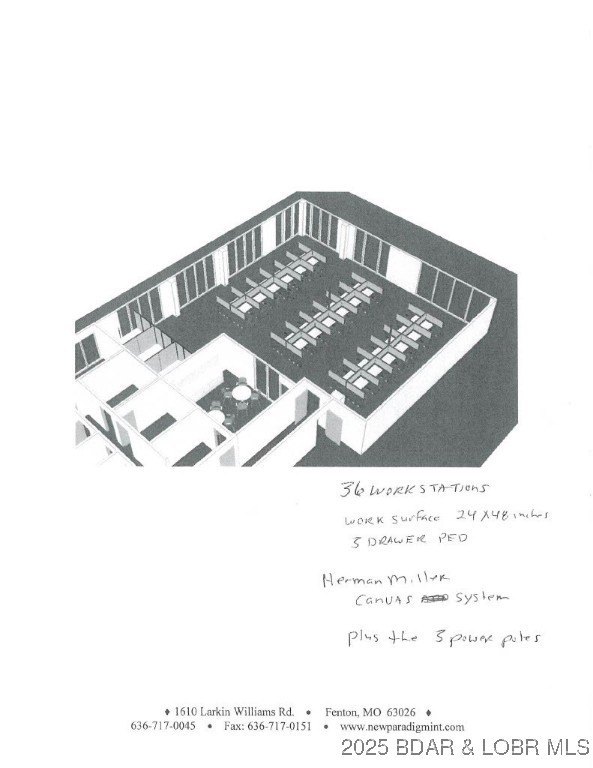 36 WORKSTATIONS
WORK SURFACE 24 X 48 inches
3 DRAWER PED
Herman Miller
CANVAS System
plus the 3 power poles
♦ 1610 Larkin Williams Rd. • Fenton, MO 63026 ♦
636-717-0045 • Fax: 636-717-0151 • www.newparadigmint.com
2025 BDAR & LOBR MLS